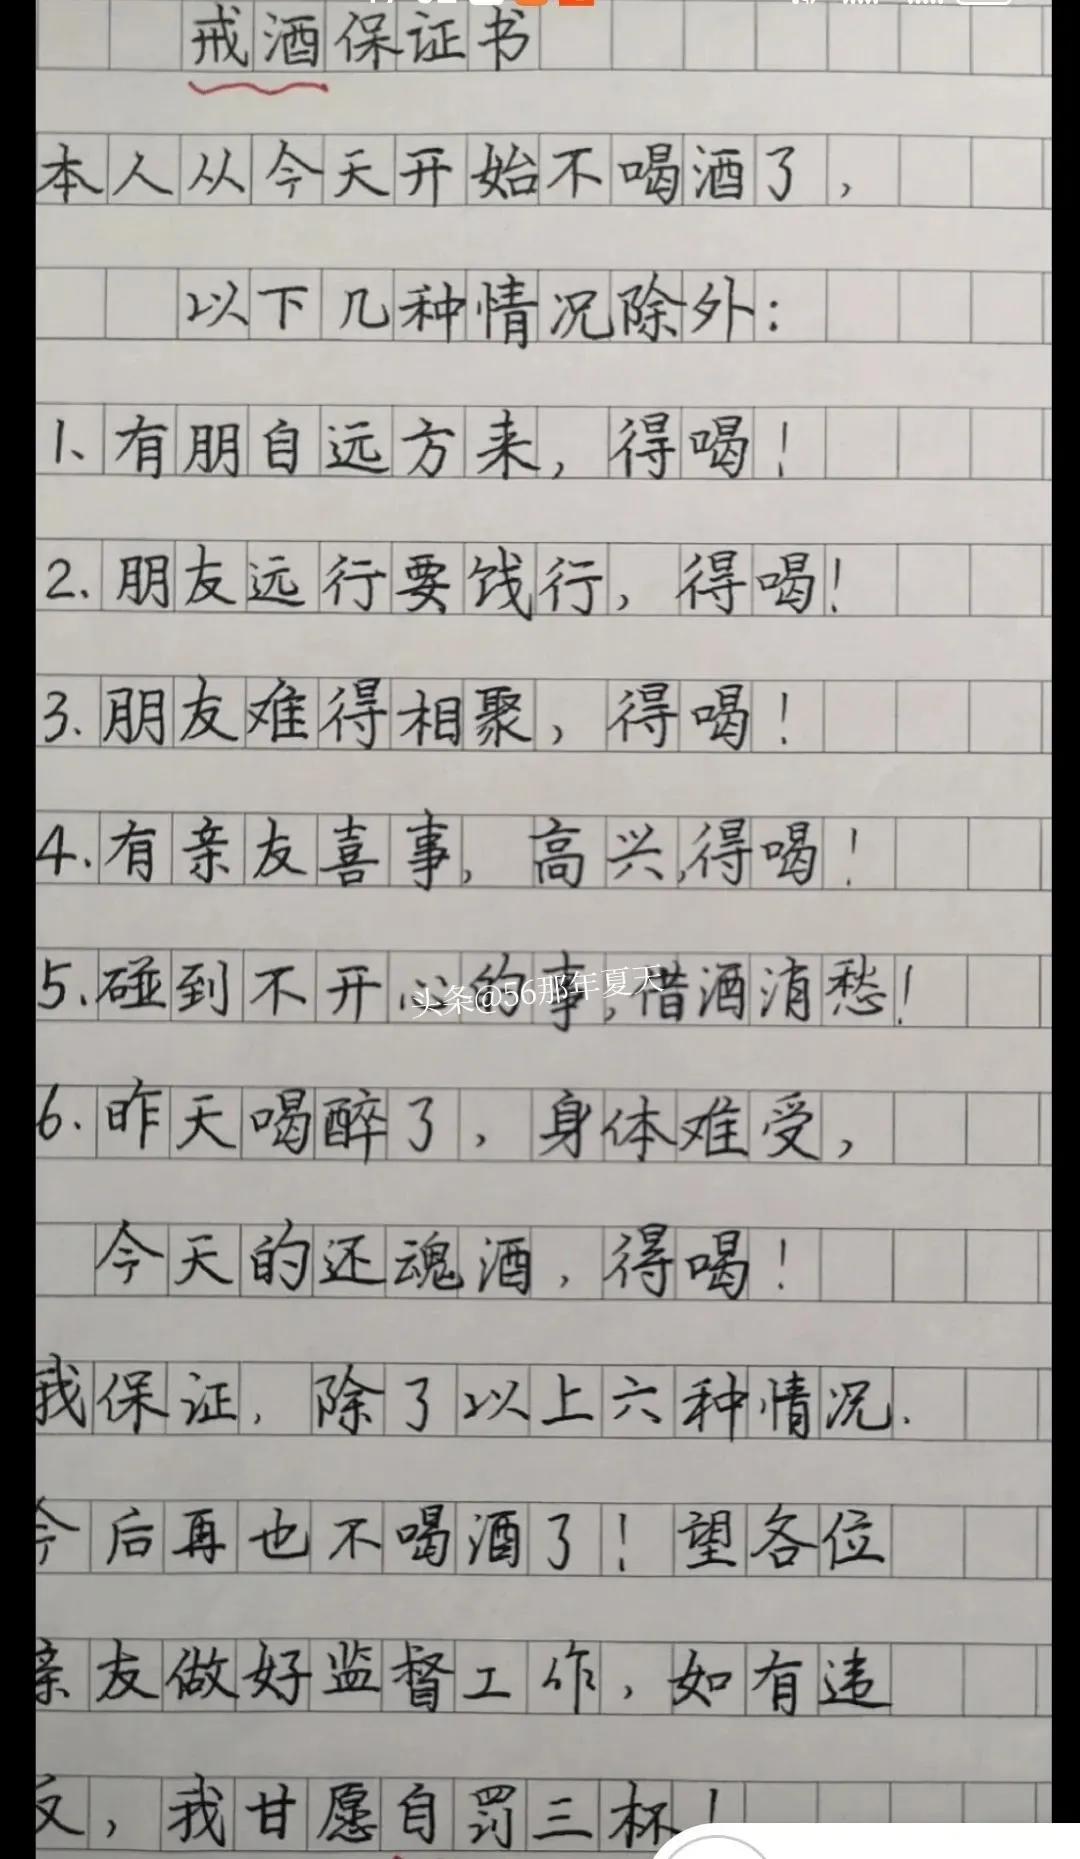 戒酒保证书
本人从今天开始不喝酒了，
以下几种情况除外：
1、有朋自远方来，得喝！
2.朋友远行要饯行，得喝！
3.朋友难得相聚，得喝！
4.有亲友喜事，高兴，得喝！
5.碰到不开心的事，借酒消愁！
头条@56那年夏天
6.昨天喝醉了，身体难受，
今天的还魂酒，得喝！
我保证，除了以上六种情况.
今后再也不喝酒了！望各位
亲友做好监督工作，如有违
反，我甘愿自罚三杯！